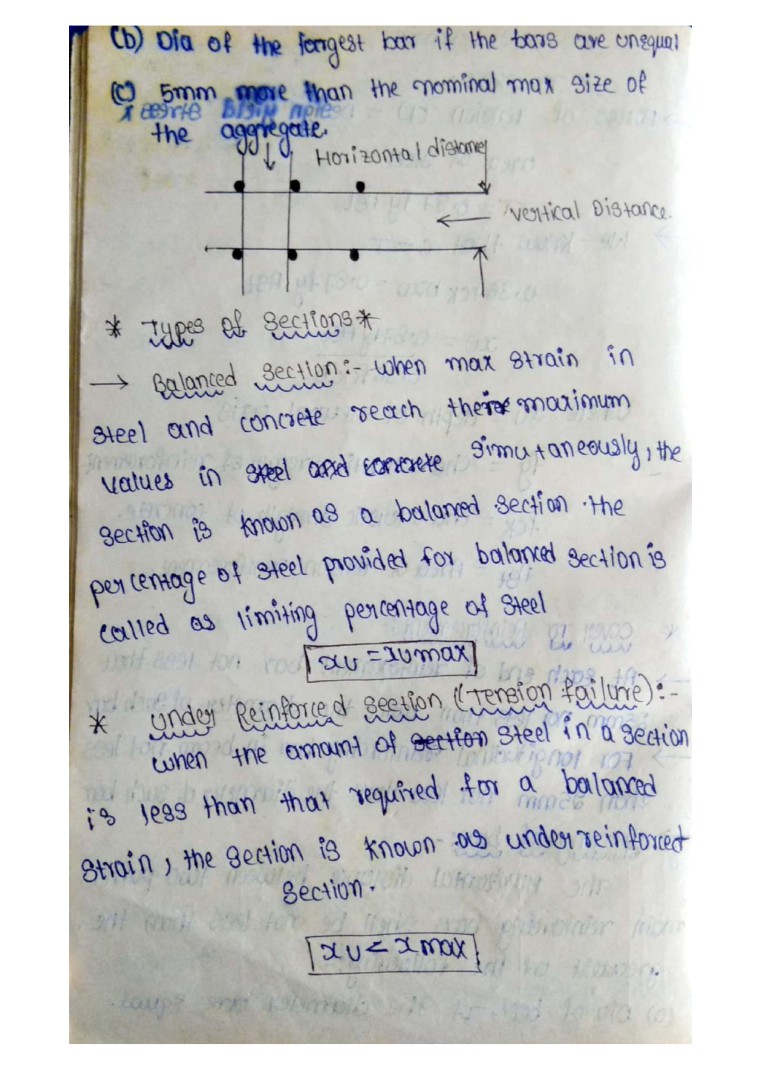 (b) Dia of the longest bar if the bars are unequal
(c) 5mm more than the nominal max size of
the aggregate.
Horizontal distance
vertical Distance.
* Types of Sections *
→ Balanced Section :- when max strain in
steel and concrete reach their maximum
values in steel and concrete simutaneously, the
section is known as a balanced section. the
percentage of steel provided for balanced section is
called as limiting percentage of steel
xu = xumax
* under Reinforced section (Tension failure) :-
when the amount of section steel in a section
is less than that required for a balanced
strain, the section is known as under reinforced
section.
xu < xmax